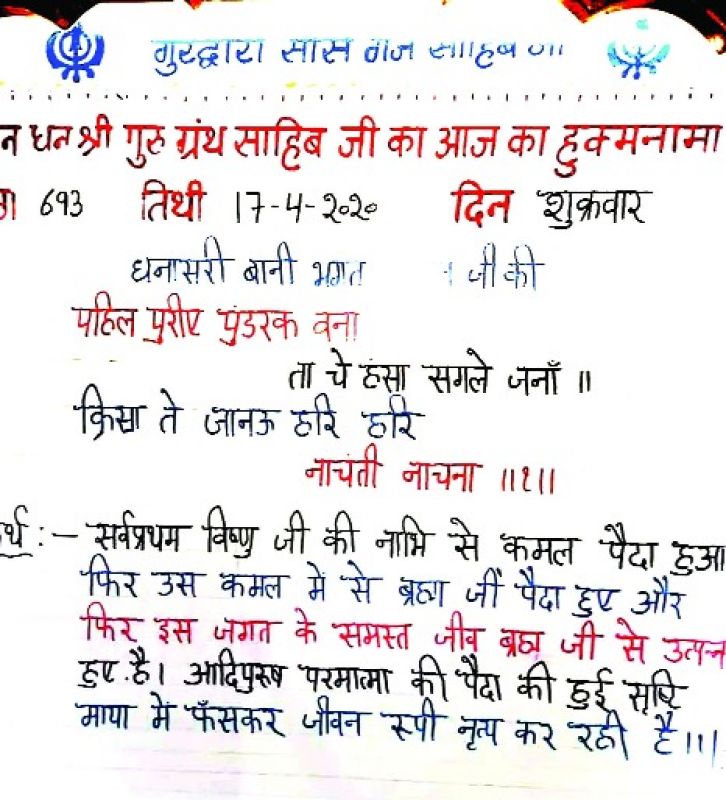 गुरद्वारा सास गंज साहिब जी
धन श्री गुरु ग्रंथ साहिब जी का आज का हुक्मनामा
693 तिथी 17-4-२०२० दिन शुक्रवार
धनासरी बानी भगत जी की
पहिल पुरीए पुंडरक वना
ता चे हंसा सगले जनाँ ॥
क्रिसा ते जानऊ हरि हरि
नाचंती नाचना ॥१॥
र्थ :- सर्वप्रथम विष्णु जी की नाभि से कमल पैदा हुआ
फिर उस कमल में से ब्रह्म जीं पैदा हुए और
फिर इस जगत के समस्त जीव ब्रह्म जी से उत्पन्न
हुए है। आदिपुरुष परमात्मा की पैदा की हुई सृष्टि
माया मे फँसकर जीवन रुपी नृत्य कर रही है।।।